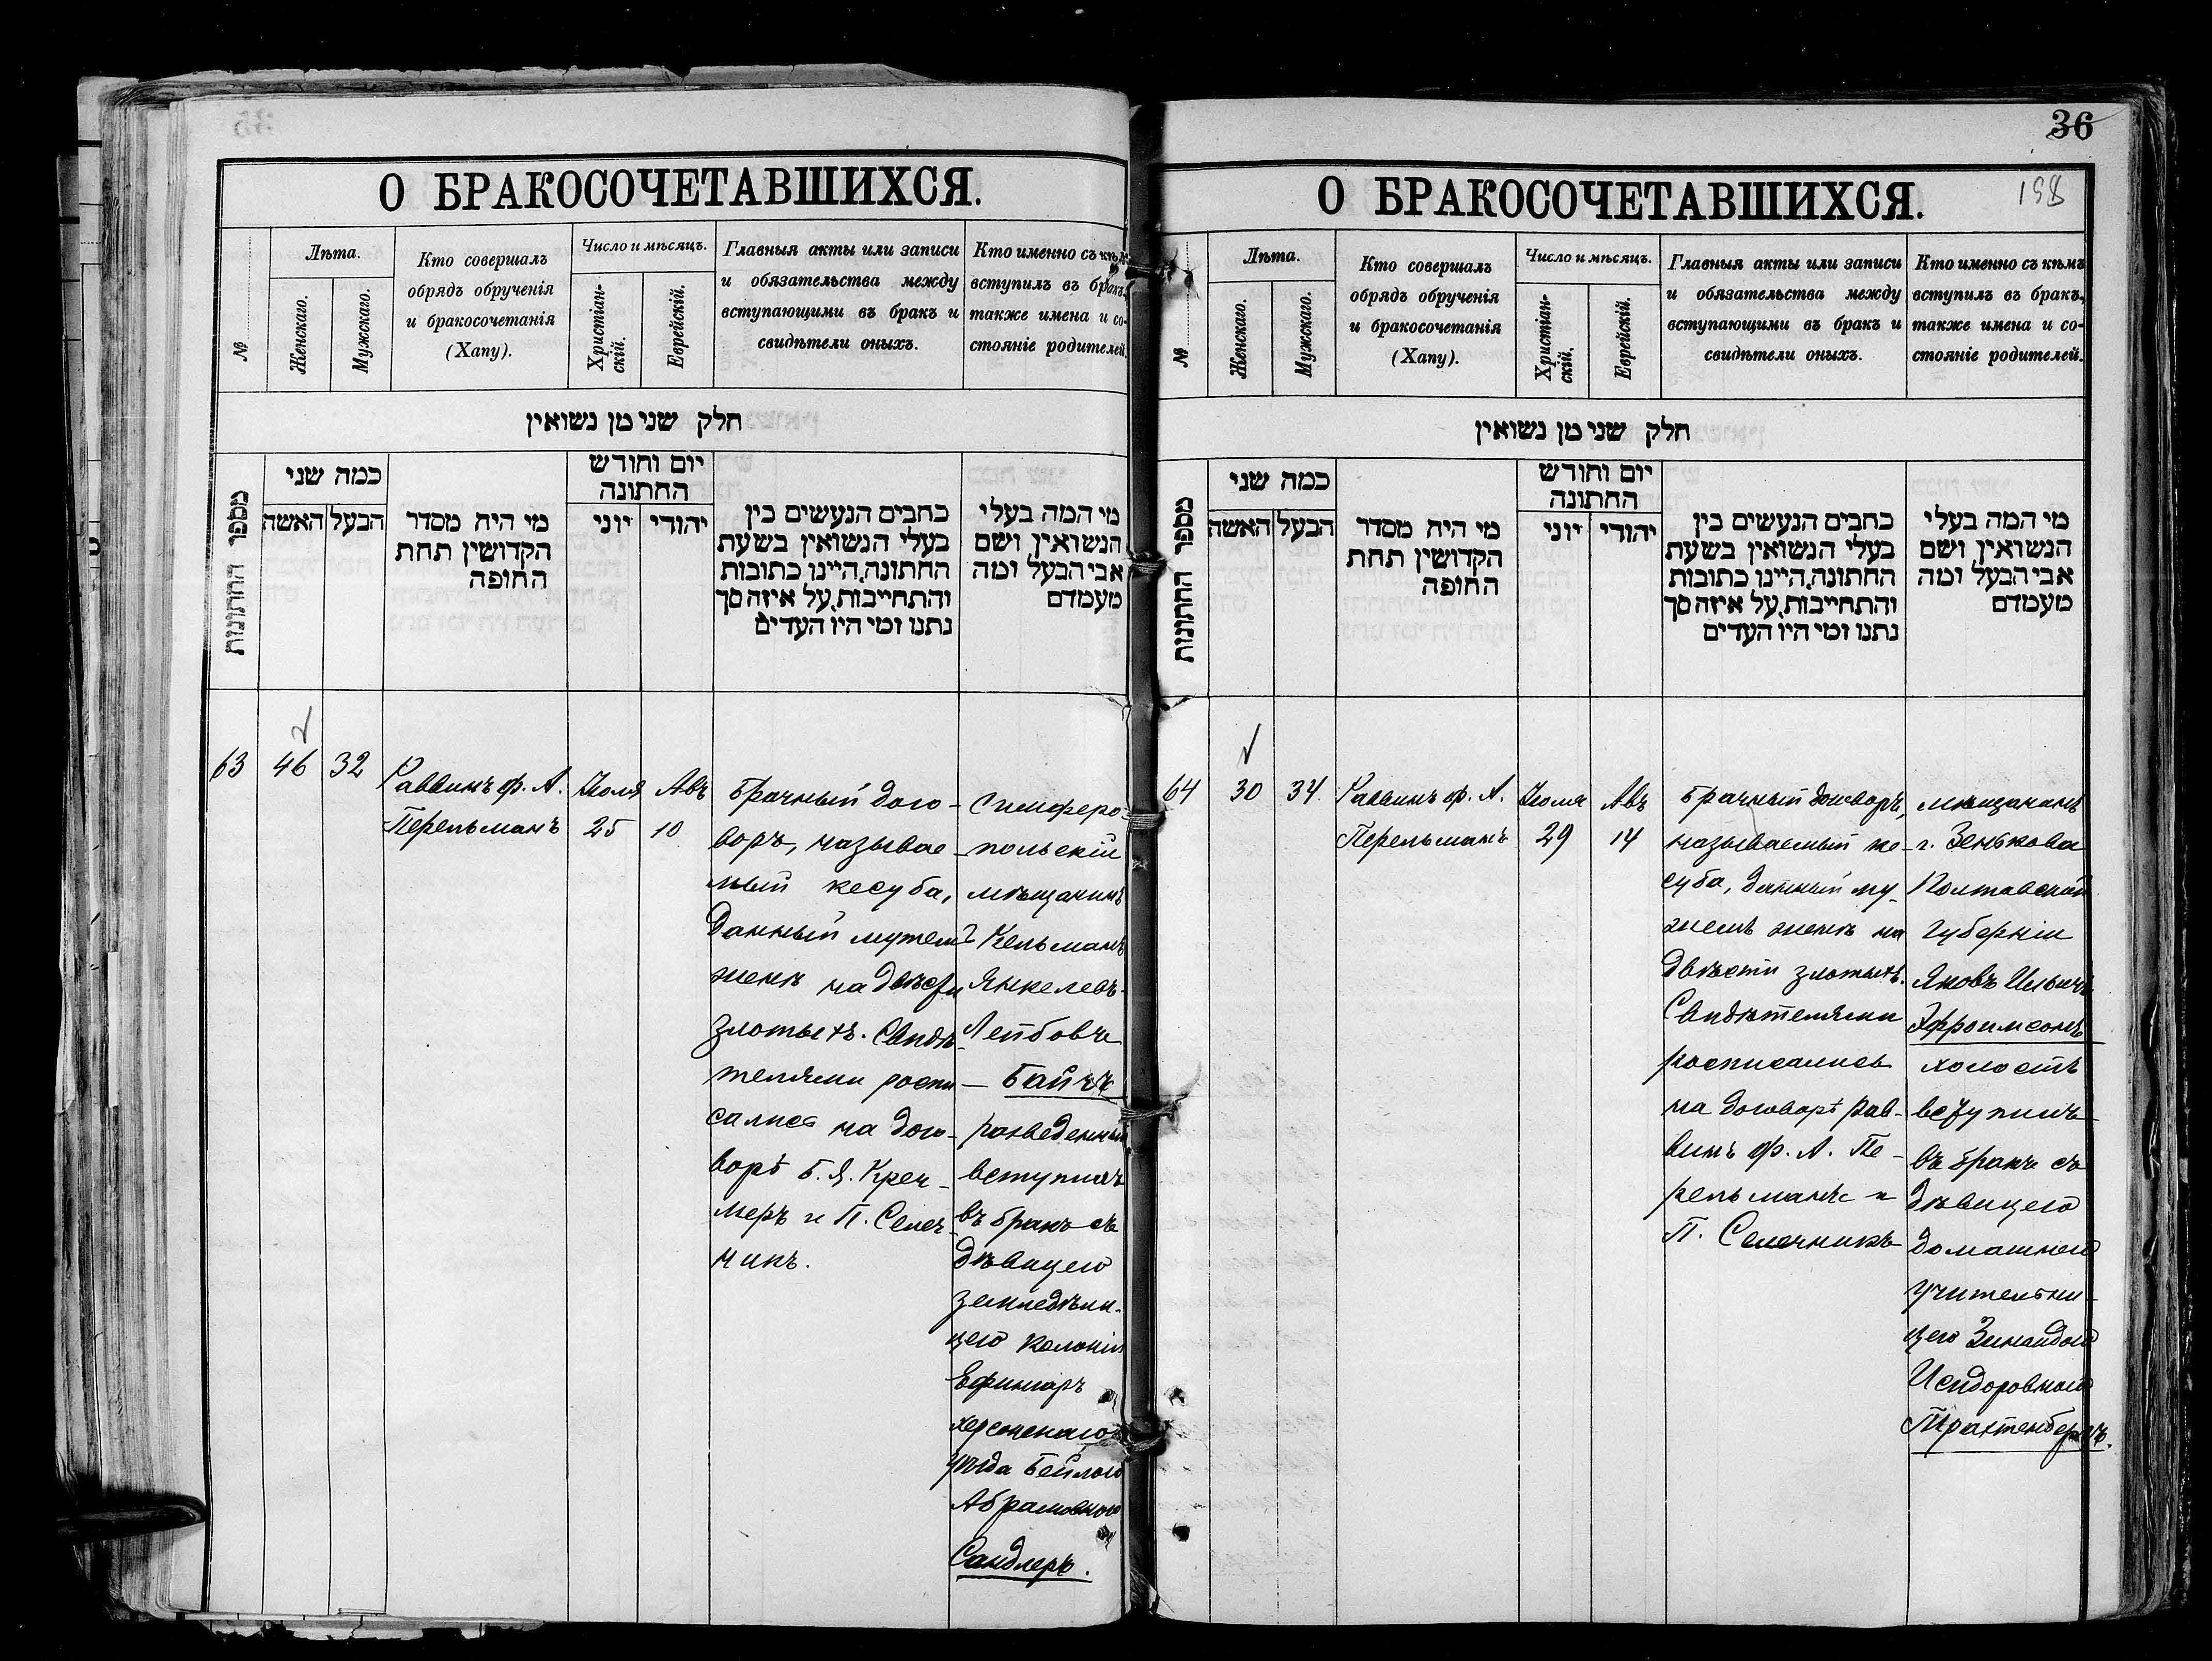 О БРАКОСОЧЕТАВШИХСЯ.
№
Лѣта.
Женскаго.
Мужскаго.
Кто совершалъ
обрядъ обрученія
и бракосочетанія
(Хапу).
Число и мѣсяцъ.
Христіан-
скій.
Еврейскій.
Главныя акты или записи
и обязательства между
вступающими въ бракъ и
свидѣтели оныхъ.
Кто именно съ кѣмъ
вступилъ въ бракъ,
также имена и со-
стояніе родителей.
חלק שני מן נשואין
מספר החתונות
כמה שני
הבעל
האשה
מי היה מסדר
הקדושין תחת
החופה
יום וחודש
החתונה
יוני
יהודי
כתבים הנעשים בין
בעלי הנשואין בשעת
החתונה, היינו כתובות
והתחייבות, על איזה סך
נתנו ומי היו העדים
מי המה בעלי
הנשואין ושם
אבי הבעל ומה
מעמדם
63
46
32
Раввинъ ф. А.
Перельманъ
Іюля
25
Авъ
10
Брачный дого-
воръ, называе-
мый кесуба,
данный мужемъ
женѣ на двѣсти
злотыхъ. Свидѣ-
телями роспи-
сались на дого-
ворѣ Б. Я. Креч-
меръ и П. Селеч-
никъ.
Симферо-
польскій
мѣщанинъ
Кельманъ
Янкелевъ-
Лейбовъ
Байчъ
разведенный
вступилъ
въ бракъ съ
дѣвицею
земледѣли-
цею колоніи
Ефингаръ
херсонскаго
уѣзда Бейлою
Абрамовною
Сандлеръ.
36
198
О БРАКОСОЧЕТАВШИХСЯ.
№
Лѣта.
Женскаго.
Мужскаго.
Кто совершалъ
обрядъ обрученія
и бракосочетанія
(Хапу).
Число и мѣсяцъ.
Христіан-
скій.
Еврейскій.
Главныя акты или записи
и обязательства между
вступающими въ бракъ и
свидѣтели оныхъ.
Кто именно съ кѣмъ
вступилъ въ бракъ,
также имена и со-
стояніе родителей.
חלק שני מן נשואין
מספר החתונות
כמה שני
הבעל
האשה
מי היה מסדר
הקדושין תחת
החופה
יום וחודש
החתונה
יוני
יהודי
כתבים הנעשים בין
בעלי הנשואין בשעת
החתונה, היינו כתובות
והתחייבות, על איזה סך
נתנו ומי היו העדים
מי המה בעלי
הנשואין ושם
אבי הבעל ומה
מעמדם
64
30
34
Раввинъ ф. А.
Перельманъ
Іюля
29
Авъ
14
Брачный договоръ,
называемый ке-
суба, данный му-
жемъ женѣ на
двѣсти злотыхъ.
Свидѣтелями
росписались
на договорѣ рав-
винъ ф. А. Пе-
рельманъ и
П. Селечникъ
мѣщанинъ
г. Зенькова
Полтавской
Губерніи
Яковъ Ильичъ
Эфроимсонъ
холостъ
вступилъ
въ бракъ съ
дѣвицею
домашнею
учительни-
цею Зинаидою
Исидоровною
Трахтенбергъ.